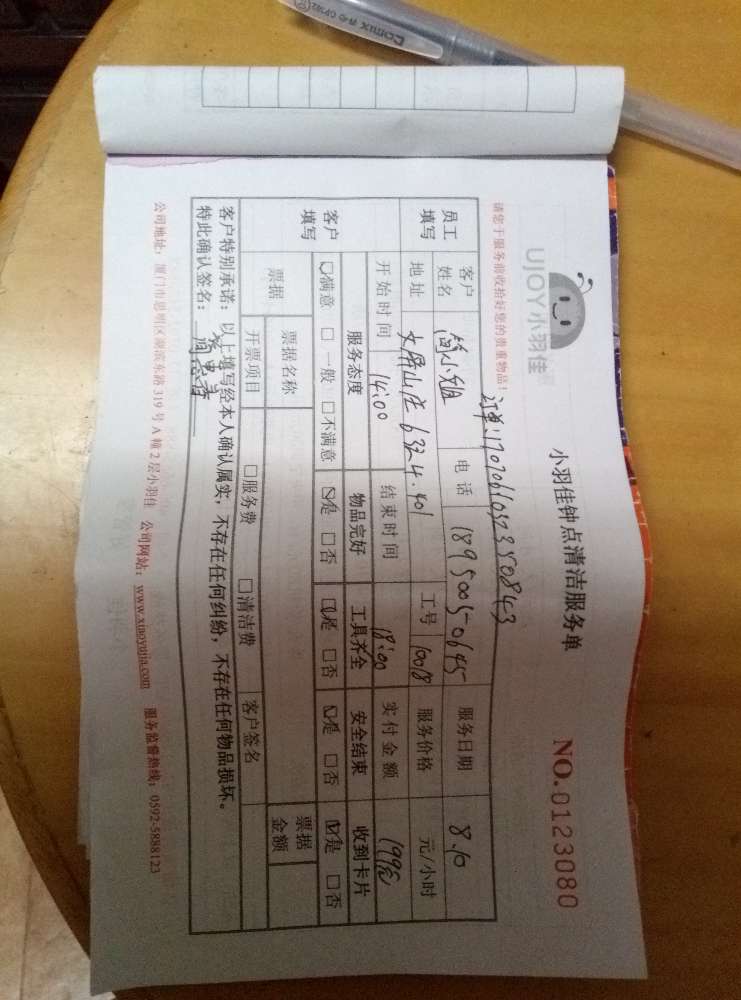 Comix
UJOY小羽佳
小羽佳钟点清洁服务单
NO.0123080
请您于服务前收拾好您的贵重物品！
员工填写
客户姓名 简小姐 电话 18950050645 服务日期 8.10
地址 工号 10018 服务价格 元/小时
开始时间 14:00 结束时间 18:00 实付金额 199元
客户填写
服务态度 物品完好 工具齐全 安全结束 收到卡片
☑满意 □一般 □不满意 ☑是 □否 ☑是 □否 ☑是 □否 ☑是 □否
票据 票据名称 票据金额
开票项目 □服务费 □清洁费 客户签名
客户特别承诺：以上填写经本人确认属实，不存在任何纠纷，不存在任何物品损坏。
特此确认签名：
公司地址：厦门市思明区湖滨东路319号A幢2层小羽佳 公司网站：www.xiaoyujia.com 服务监督热线：0592-5888123